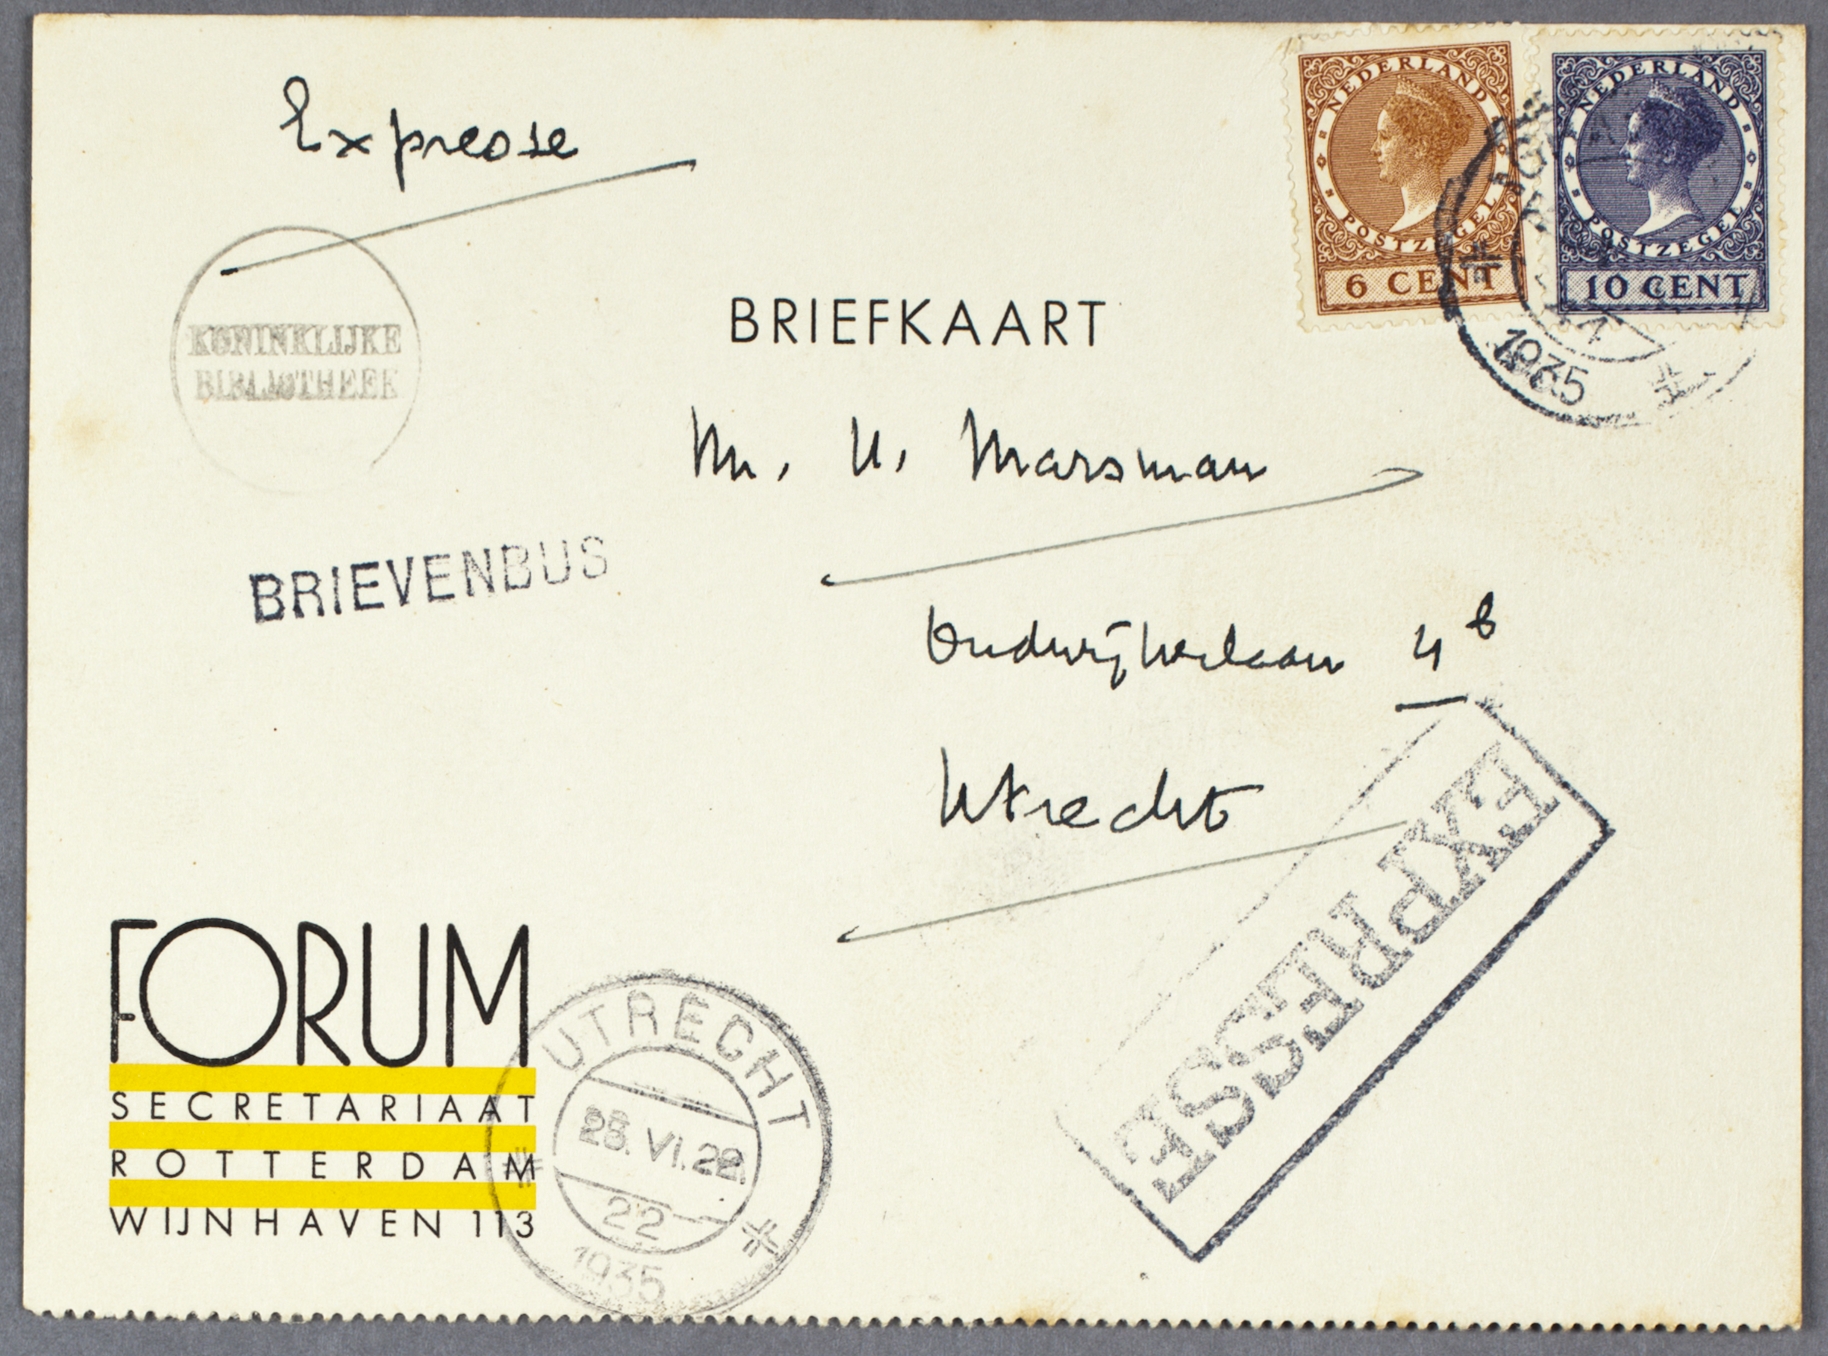 Expresse
NEDERLAND
POSTZEGEL
6 CENT
NEDERLAND
POSTZEGEL
10 CENT
1935
KONINKLIJKE
BIBLIOTHEEK
BRIEFKAART
Mr. H. Marsman
BRIEVENBUS
Oudwijkerlaan 4b
Utrecht
EXPRESSE
FORUM
SECRETARIAAT
ROTTERDAM
WIJNHAVEN 113
UTRECHT
VI.
22
1935